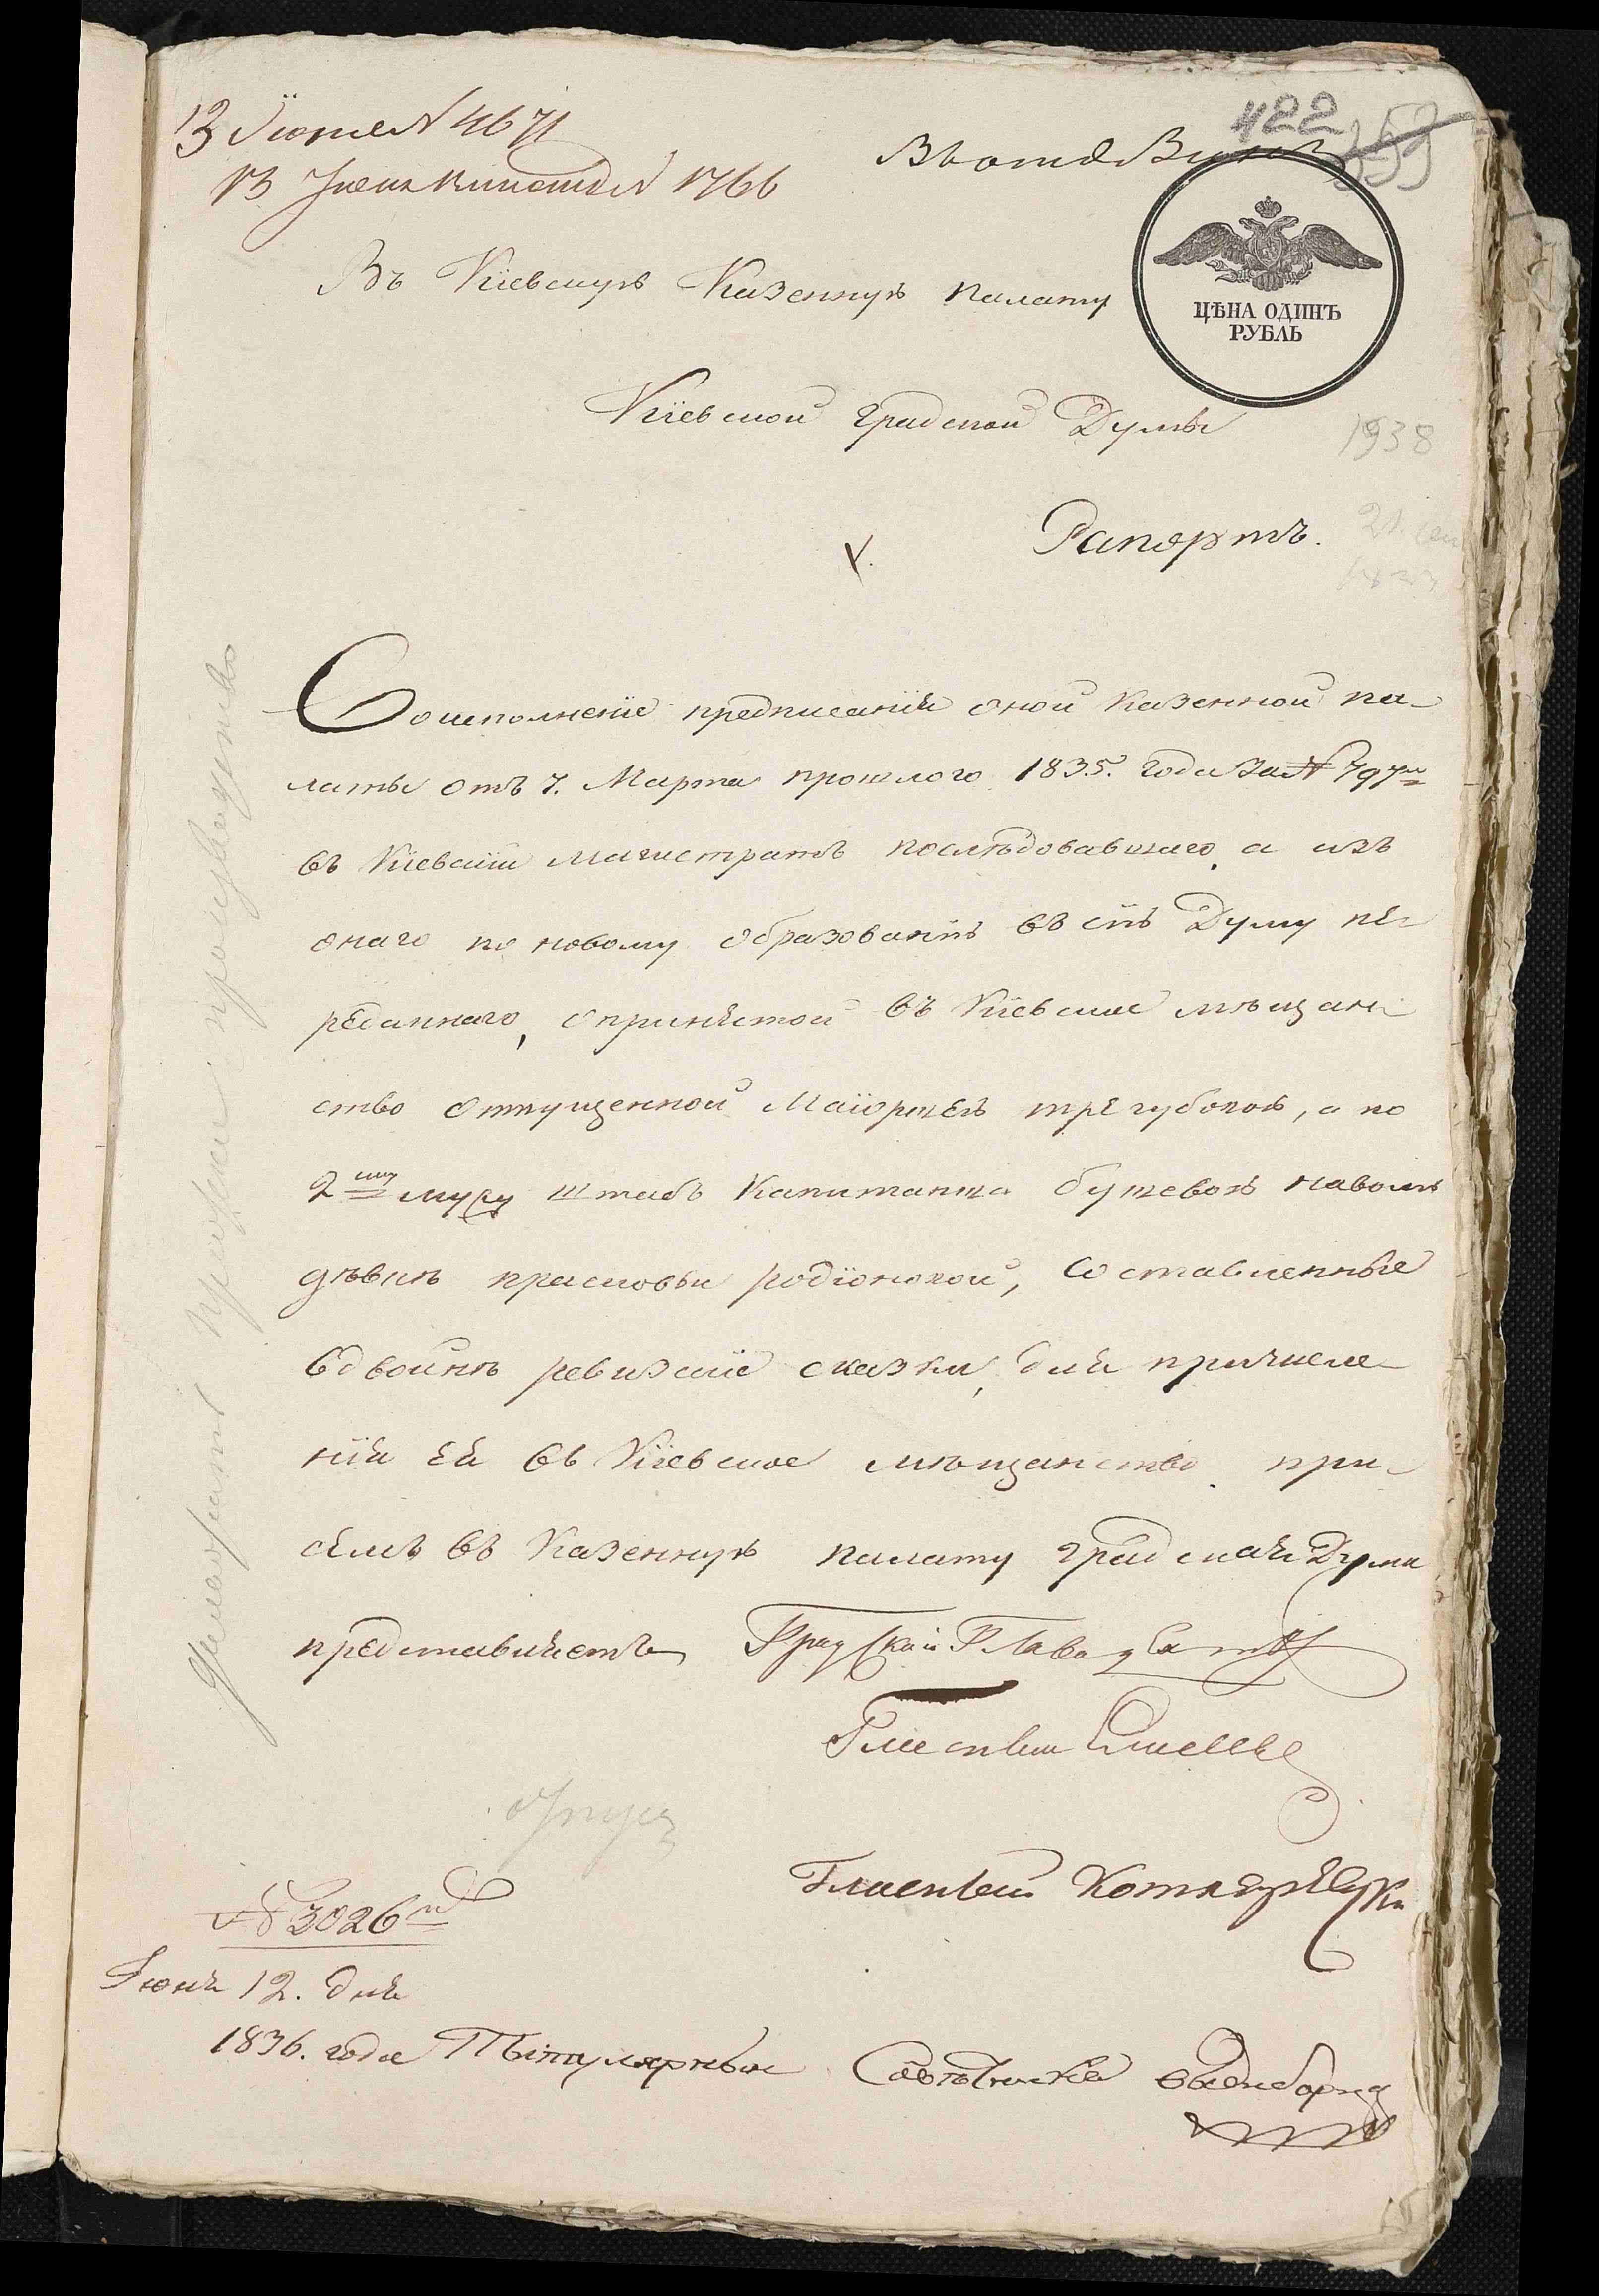 13 Июня № 4671
422
353
Въ Кіевскую Казенную палату
ЦѢНА ОДИНЪ
РУБЛЬ
Кіевской градской Думы
1938
Рапортъ.
Во исполненіе предписанія оной Казенной па-
латы отъ 7. Марта прошлого 1835. года за №
въ Кіевскій магистратъ послѣдовавшаго, а изъ
онаго по новому образованію въ сію Думу пе-
реданнаго, о принятой въ Кіевское мѣщан-
ство отпущенной Маіоршею трегубовою, а по
2му мужу штабъ Капитанша бушевою на волю
дѣвкѣ прасковьи родіоновой, Составленные
вдвойнѣ ревизскіе сказки, для причисле-
нія ея въ Кіевское мѣщанство при-
семъ въ Казенную палату градская Дума
представляетъ Градскай Глава
Гласный
Гласный
№ 3026й
Іюня 12. дня
1836. года Титулярный Совѣтникъ